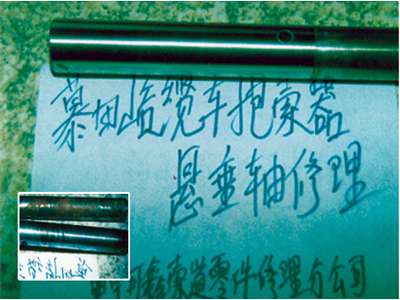 慕田峪缆车抱索器
悬垂轴修理
鑫索道零件修理有公司